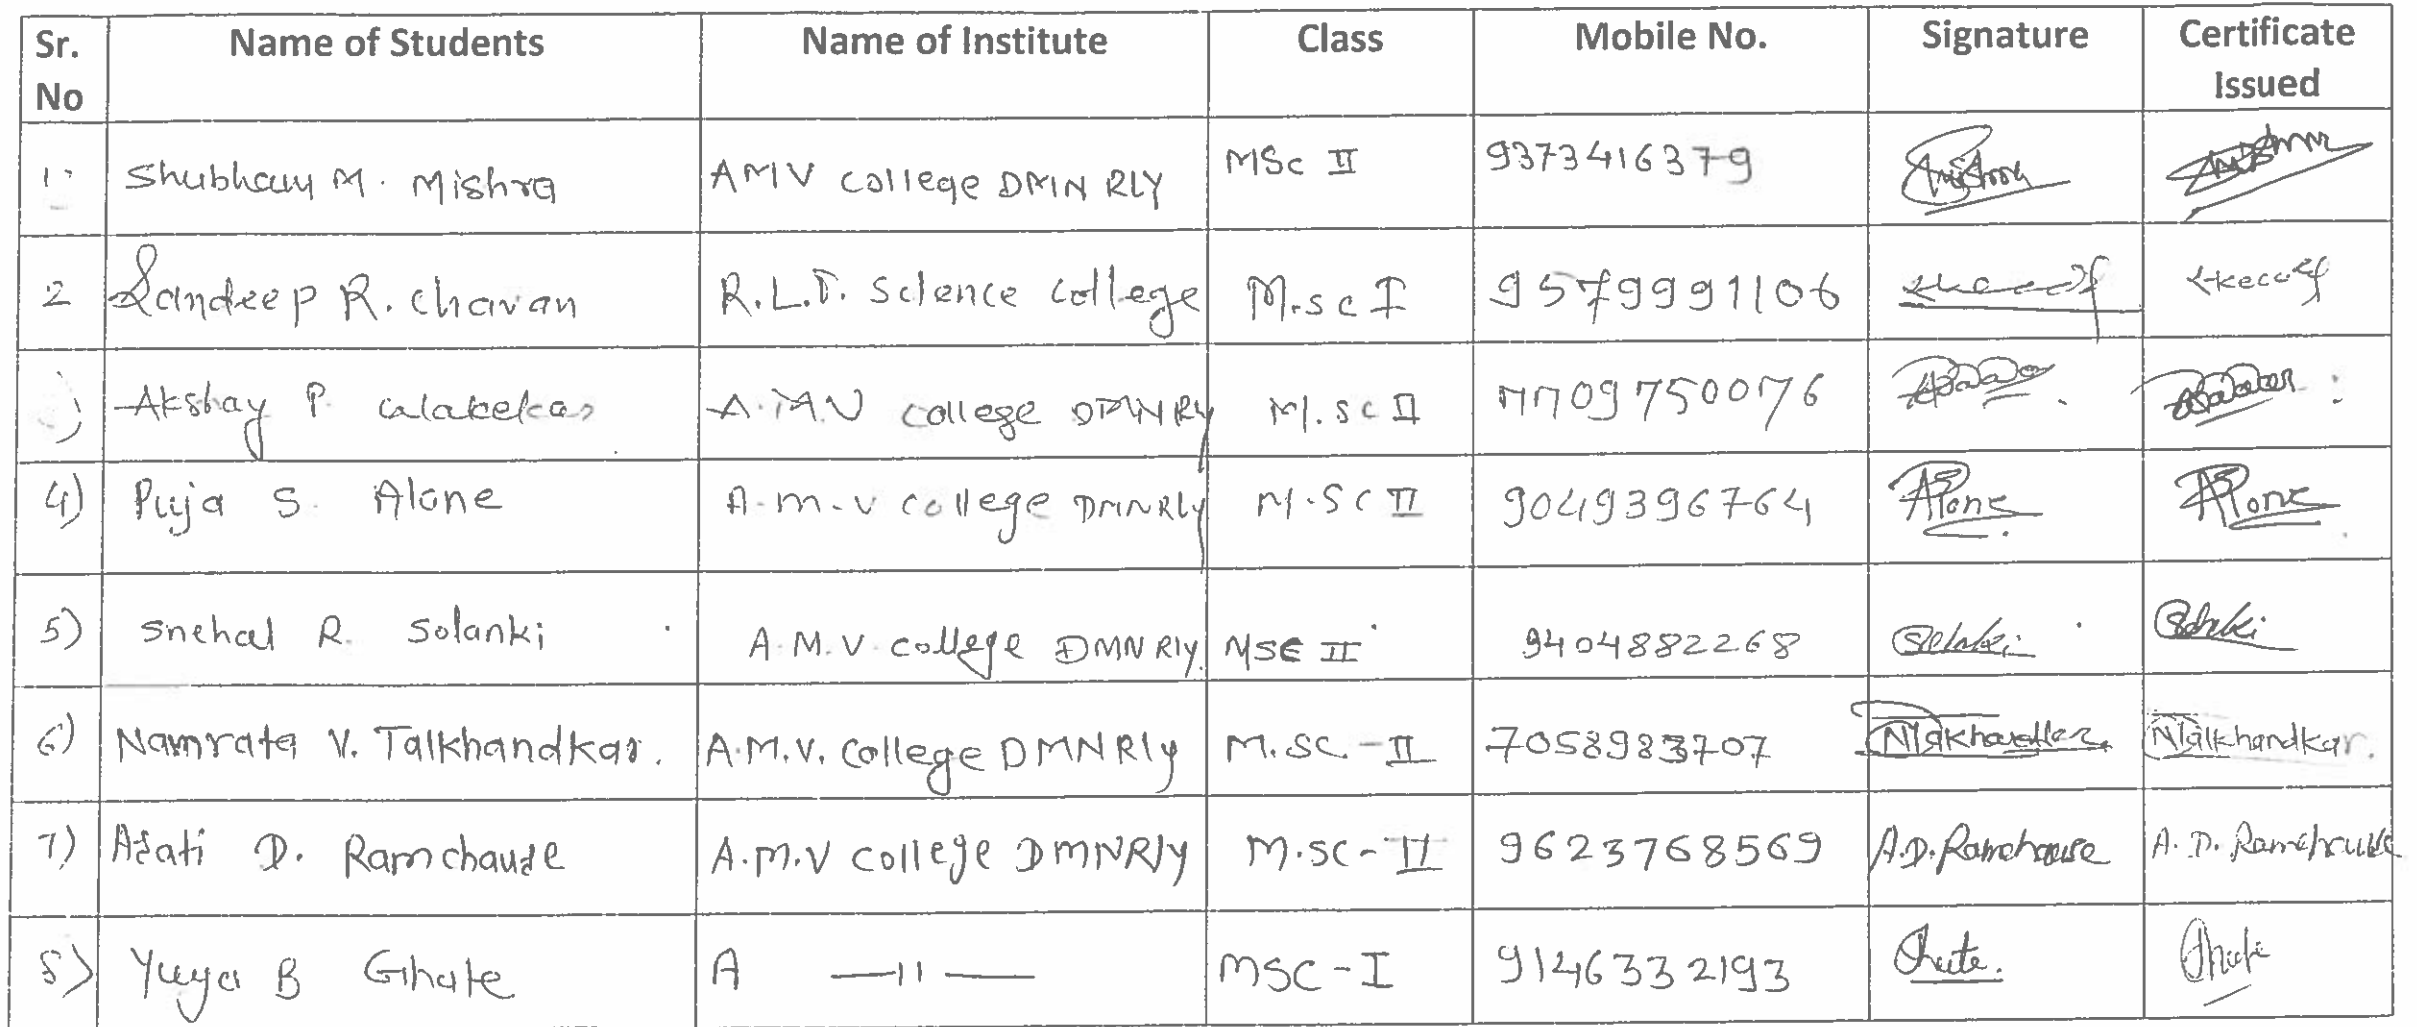 Sr. No Name of Students Name of Institute Class Mobile No. Signature Certificate Issued
1. Shubham M. Mishra AMV College DMN RLY MSc II 9373416379
2 Sandeep R. Chavan R.L.T. Science College M.sc I 9579991106
) Akshay P A.M.V College DMN Rly M.sc II 7709750076
4) Puja S. Alone A.m.v College DMNRly M.Sc II 9049396764 Alone Alone
5) Snehal R. Solanki A.M.V. College DMN Rly. MSC II 9404882268 Solanki Solanki
6) Namrata V. Talkhandkar. A.M.V. College DMNRly M.SC-II 7058983707 NTalkhandkar. NTalkhandkar.
7) Arati D. Ramchaure A.M.V College DMNRly M.SC-II 9623768569 A.D.Ramchaure A.D.Ramchaure
8) B Ghate A —11— MSC-I 9146332193